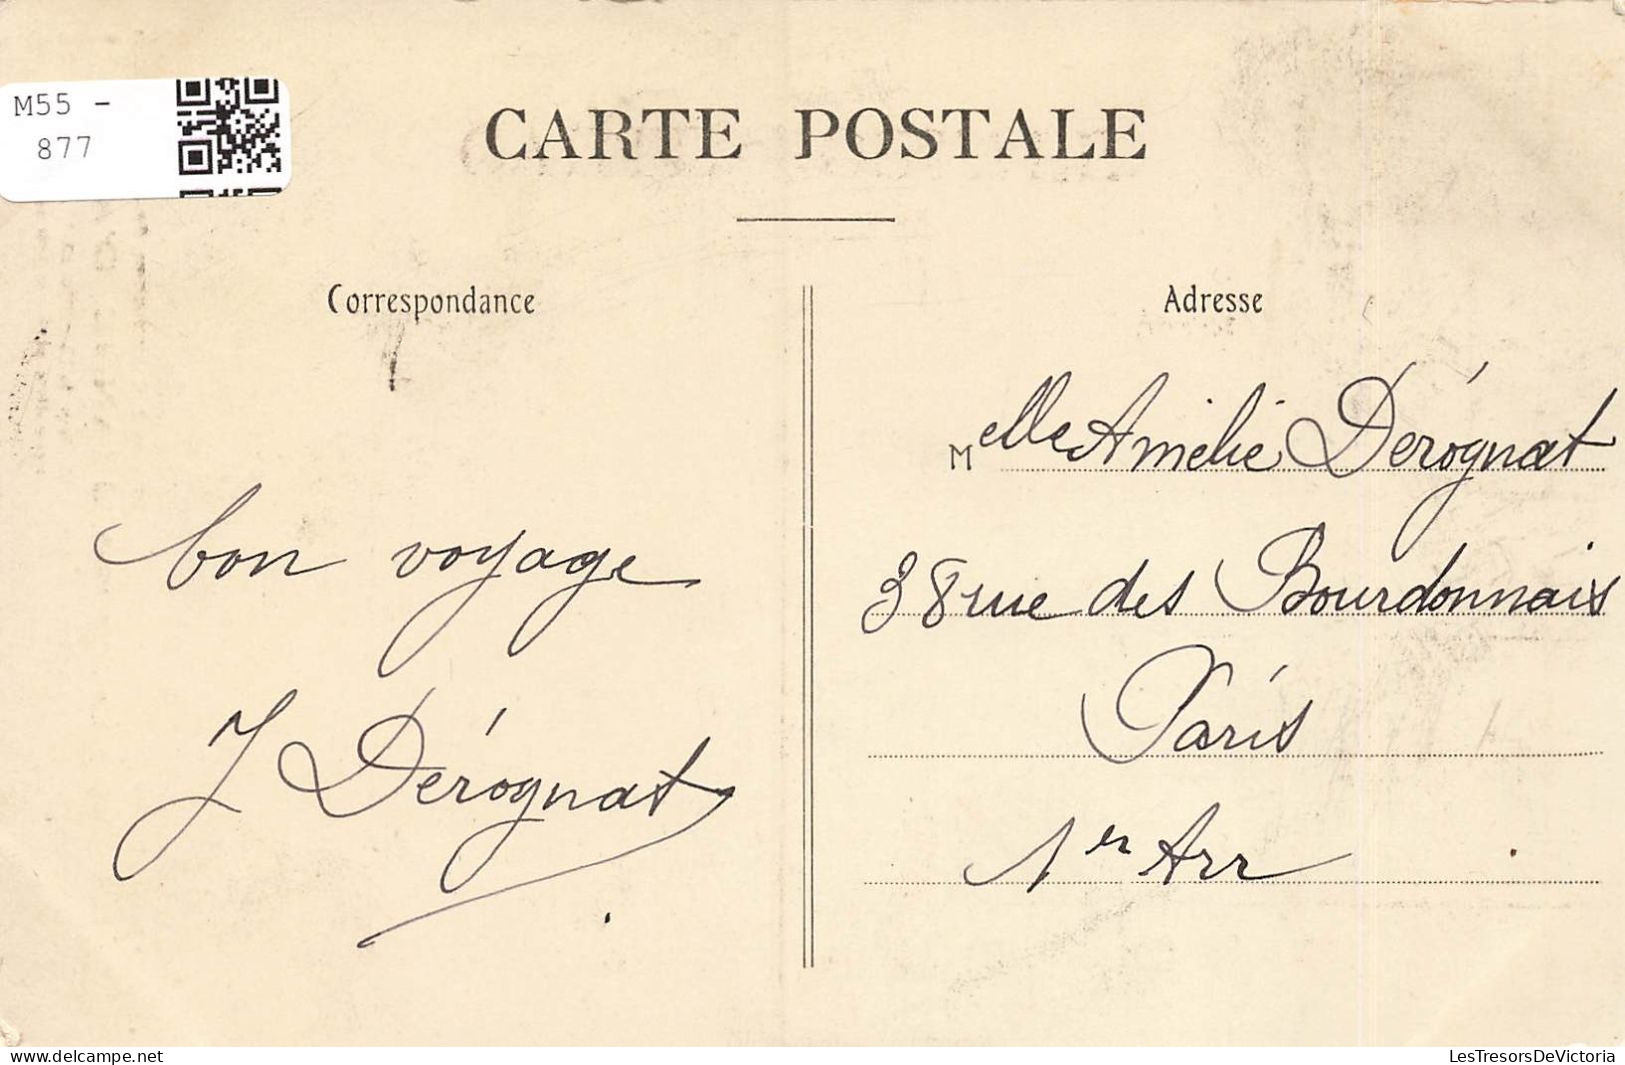 M55 -
877
CARTE POSTALE
Correspondance
Adresse
Melle Amélie Dérognat
38 rue des Bourdonnais
Paris
1er Arr
bon voyage
J Dérognat
delcampe.net
LesTresorsDeVictoria